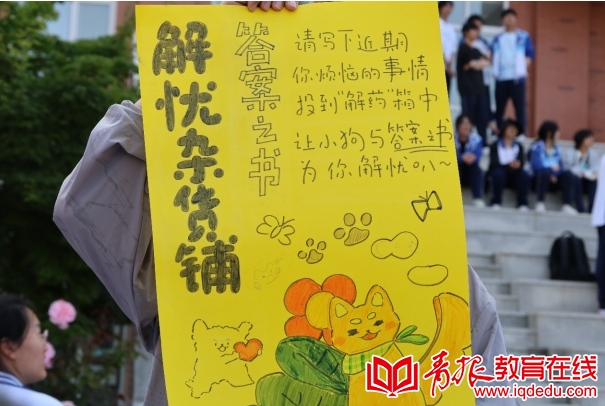 解忧杂货铺
答案之书
请写下近期
你烦恼的事情
投到"解药"箱中
让小狗与答案之书
为你解忧叭~
青报教育在线
www.iqdedu.com